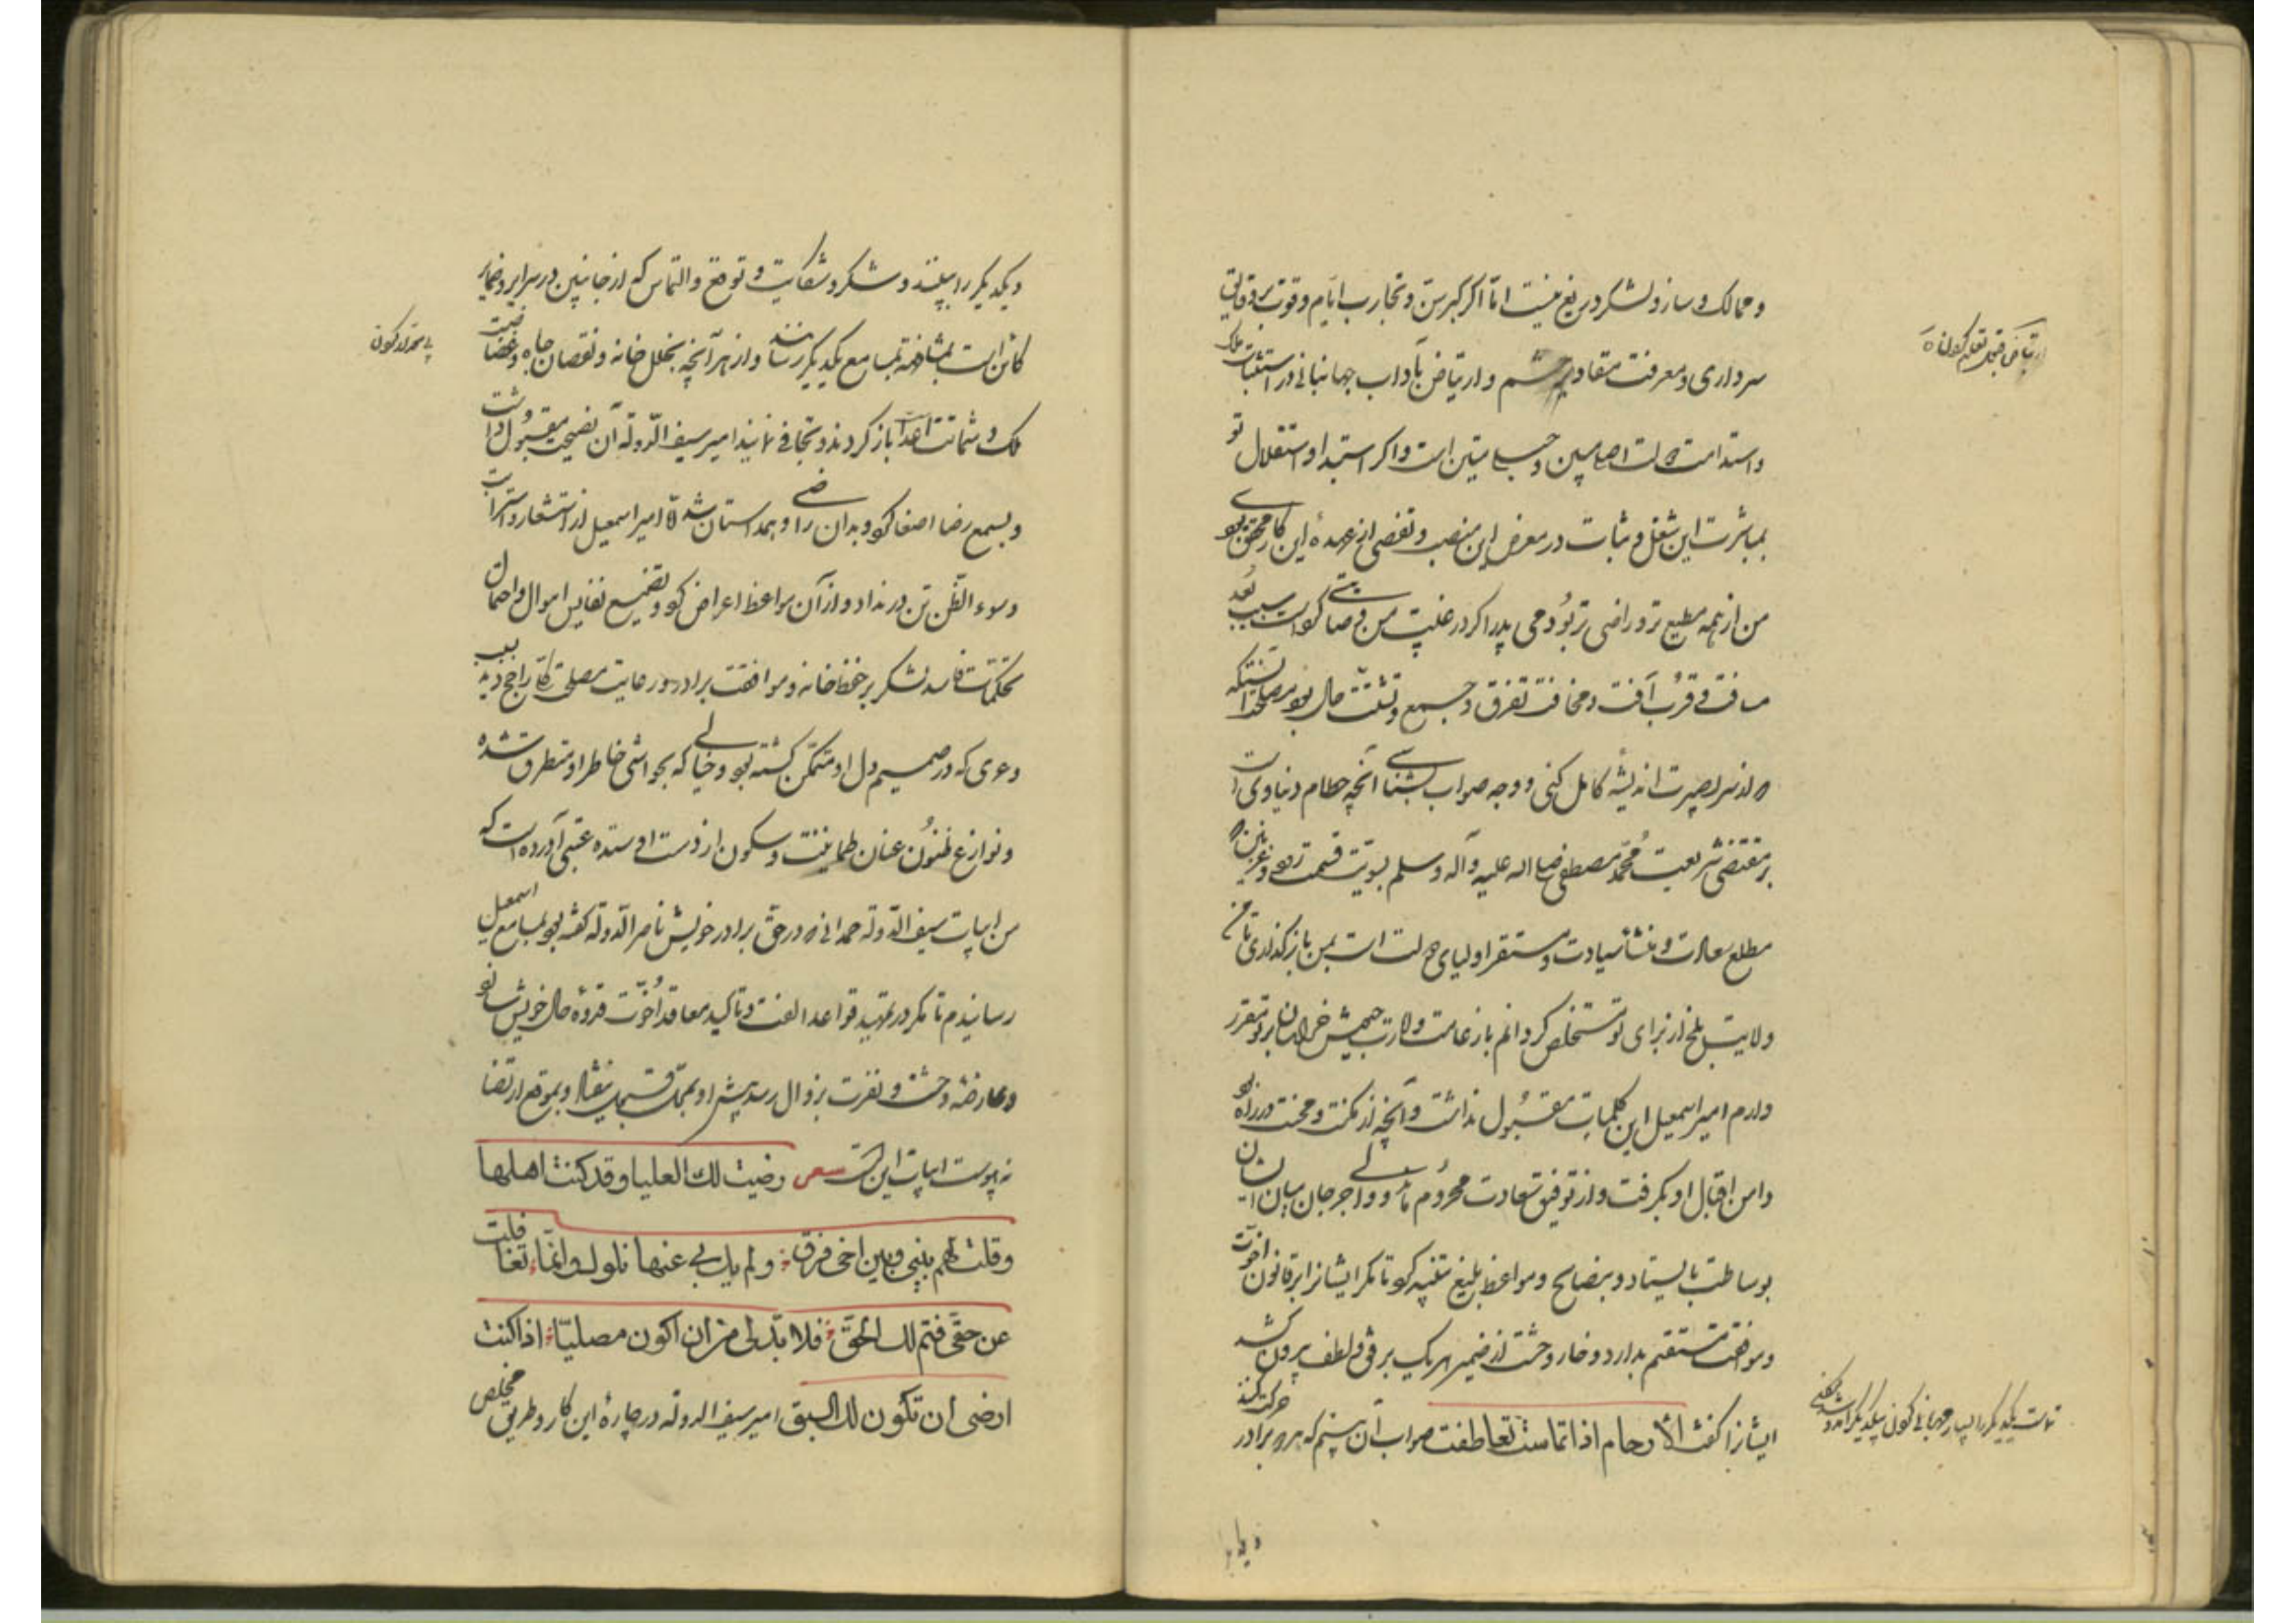 و ممالک و ساز و لشکر دریغ نیست اما اگر کبر سن و تجارب ایام و قوت بر دقایق
سرداری و معرفت مقادیر حشم و ارتیاض بآداب جهانبانی در استثبات ملک
واستدامت دولت اصلی مبین و حبلی متین است و اگر استبداد و استقلال تو
بمباشرت این شغل و ثبات در معرض این منصب و تفصی از عهدهٔ این کار محقق بودی
من از همه مطیع تر و راضی تر بودمی پدر اگر در غیبت من وصایتی کرد سبب بعد
مسافت و قرب آفت و مخافت تفرق جمع و تشتت حال بود مصلحت آنستکه
از سر بصیرت اندیشهٔ کامل کنی و وجه صواب بشناسی آنچه حطام دنیاوی است
بر مقتضی شریعت محمد مصطفی صلی الله علیه وآله وسلم بسویت قسمت کرده و غزنین که
مطلع سعادت و منشأ سیادت و مستقر اولیای دولت است بمن باز گذاری تا من
ولایت بلخ از برای تو مستخلص کردانم یا زعامت و امارت جیش خراسان بر تو مقرر
دارم امیر اسمعیل این کلمات مقبول نداشت و آنچه از نکبت و محنت در راه بود
دامن اقبال او بگرفت و از توفیق سعادت محروم ماند و والی جرجان میان ایشان
بوساطت بایستاد و بنصایح و مواعظ بلیغ تنبیه کرد تا مگر ایشانرا بر قانون اخوت
وموافقت مستقیم بدارد و خار وحشت از ضمیر هر یک برفق و لطف بیرون کشد
ایشانرا گفت الارحام اذا تماست تعاطفت صواب آن میبینم که هر دو برادر حرکت کنند
و یکدیگر را ببینند و شکر و شکایت و توقع و التماس که از جانبین در سرایر و ضمایر
کائن است بمشافهه بمسامع یکدیگر رسانند و از هر آنچه بخلل خانه و نقصان جاه و غضاضت
ملک و شماتت اعدا باز کردد و تجافی نمایند امیر سیف الدوله آن نصیحت مقبول داشت
و بسمع رضا اصغا کرد و بدان راضی و همداستان شد امیر اسمعیل از استشعار و استرابت
و سوء الظن تن در نداد و از آن مواعظ اعراض کرد و تضییع نفایس اموال و احتمال
تحکمات فاسد لشکر بر حفظ خانه و موافقت برادر و رعایت مصلحت کار راجح دید بسبب
دعوی که در صمیم دل او متمکن گشته بود و خیالی که بحواشی خاطر او متطرق شده
و نوازع ظنون عنان طمانینت و سکون از دست او ستده عتبی آورده است که
من ابیات سیف الدوله حمدانی که در حق برادر خویش ناصر الدوله گفته بود بمسامع اسمعیل
رسانیدم تا مگر در تمهید قواعد الفت و تاکید معاقد اخوت قدوهٔ حال خویش سازد
وعارضهٔ وحشت و نفرت بزوال رسد پیش او بمحل قبول نیفتاد و بموقع ارتضا
نه پیوست ابیات این است شعر رضیت لك العلیا وقد کنت اهلها
وقلت لهم بینی وبین اخی فرق ولم یك بی عنها نکول وانما تغافلت
عن حقی فتم لك الحق فلا بد لی من ان اکون مصلیا اذا کنت
ارضی ان تکون لك السبق امیر سیف الدوله در چارهٔ این کار و طریق مخلص